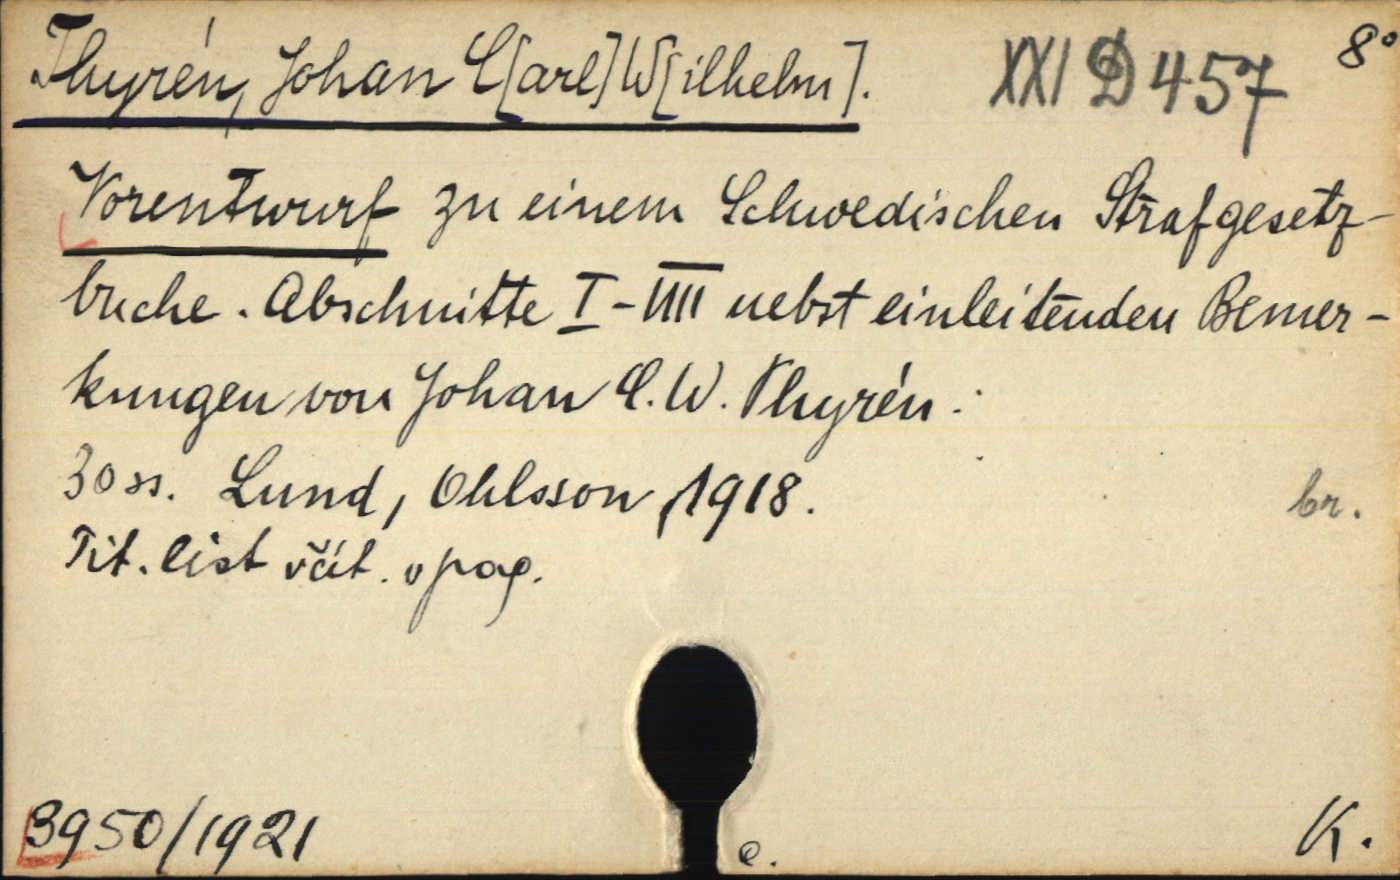 Thyrén, Johan C[arl] W[ilhelm]. XXI D 457 8°
Vorentwurf zu einem Schwedischen Strafgesetz-
buche. Abschnitte I-IIII nebst einleitenden Bemer-
kungen von Johan C. W. Thyrén.
30 ss. Lund, Ohlsson, 1918. br.
Tit. list včít. v pag.
3950/1921 e. K.